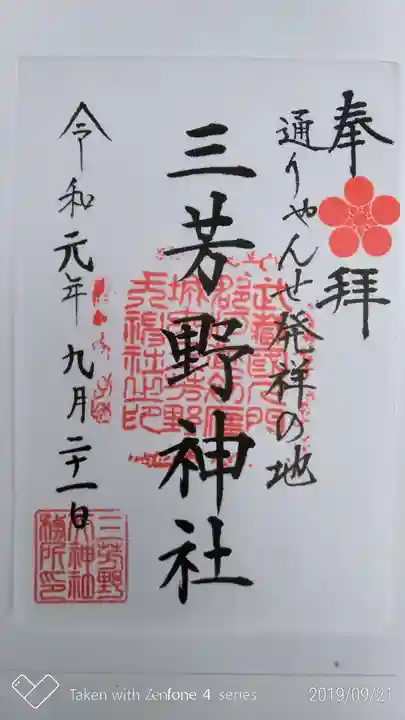 奉拝
通りゃんせ発祥の地
三芳野神社
令和元年九月二十一日
三芳野
大神社
務所印
Taken with Zenfone 4 series
2019/09/21